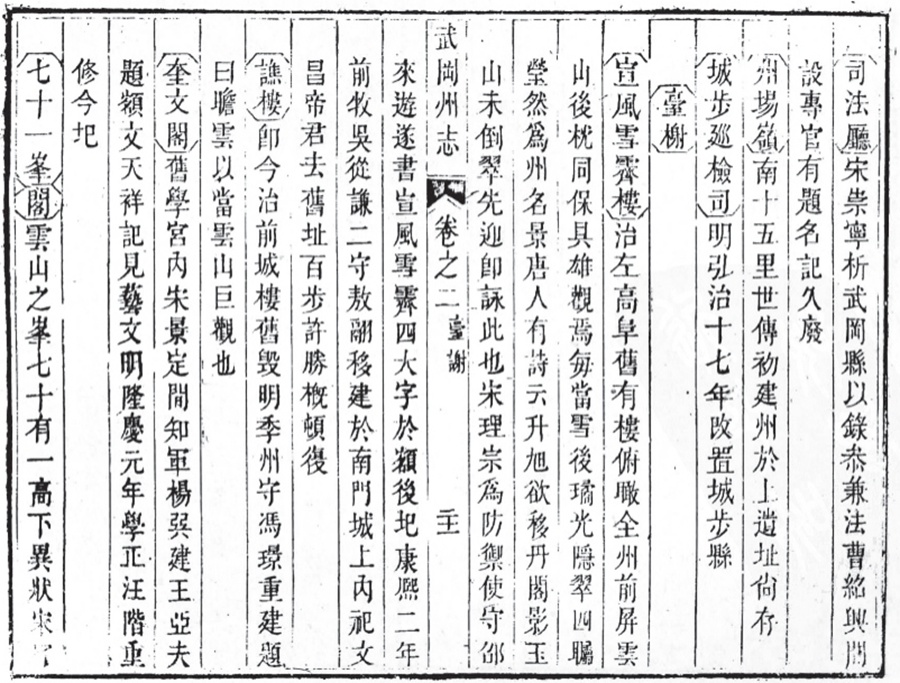 司法廳宋崇寧析武岡縣以錄叅兼法曹紹興間
設專官有題名記久廢
州場嶺南十五里世傳初建州於上遺址尚存
城步廵檢司明弘治十七年改置城步縣
臺榭
宣風雪霽樓治左高阜舊有樓俯瞰全州前屏雲
山後枕同保具雄觀焉每當雪後璚光隱翠四矚
瑩然爲州名景唐人有詩云升旭欲移丹閣影玉
山未倒翠先迎卽詠此也宋理宗爲防禦使守邵
武岡州志
卷之二
臺謝
二十
來遊遂書宣風雪霽四大字於額後圯康熙二年
前牧吳從謙二守敖翮移建於南門城上內祀文
昌帝君去舊址百步許勝槪頓復
譙樓卽今治前城樓舊毁明季州守馮璟重建題
曰瞻雲以當雲山巨觀也
奎文閣舊學宮內宋景定間知軍楊巽建王亞夫
題額文天祥記見藝文明隆慶元年學正汪階重
修今圯
七十一峯閣雲山之峯七十有一高下異狀宋